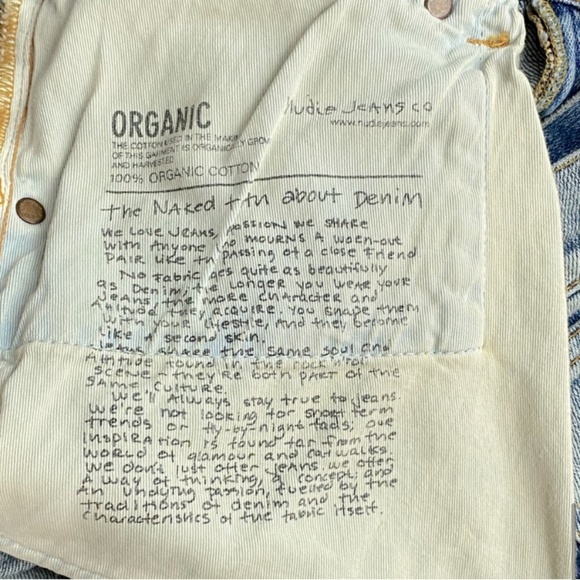 ORGANIC
THE COTTON USED IN THE MAKING
OF THIS GARMENT IS ORGANICALLY GROWN
AND HARVESTED
100% ORGANIC COTTON
Nudie Jeans co
www.nudiejeans.com
the NAKED ttn about Denim
We Love JEANS, passion we SHARE
with Anyone who MOURNS A worn-out
PAIR like the passing of a close friend
No Fabric ages quite as beautifully
as Denim, the longer you WEAR your
Jeans, the more character and
Attitude they ACQUIRE. You shape them
with your lifestyle, And they become
like A second skin.
Jeans share the same soul and
Attitude found in the rock 'n' roll
Scene - they're both PART of the
SAME Culture.
We'll Always stay true to jeans.
We're not looking for short term
trends or fly-by-night fads; our
INSPIRATION is found far from the
WORLD of glamour and catwalks.
We don't just offer jeans. we offer
A way of thinking, a concept, and
An undying passion, fuelled by the
traditions of denim and the
Characteristics of the fabric itself.